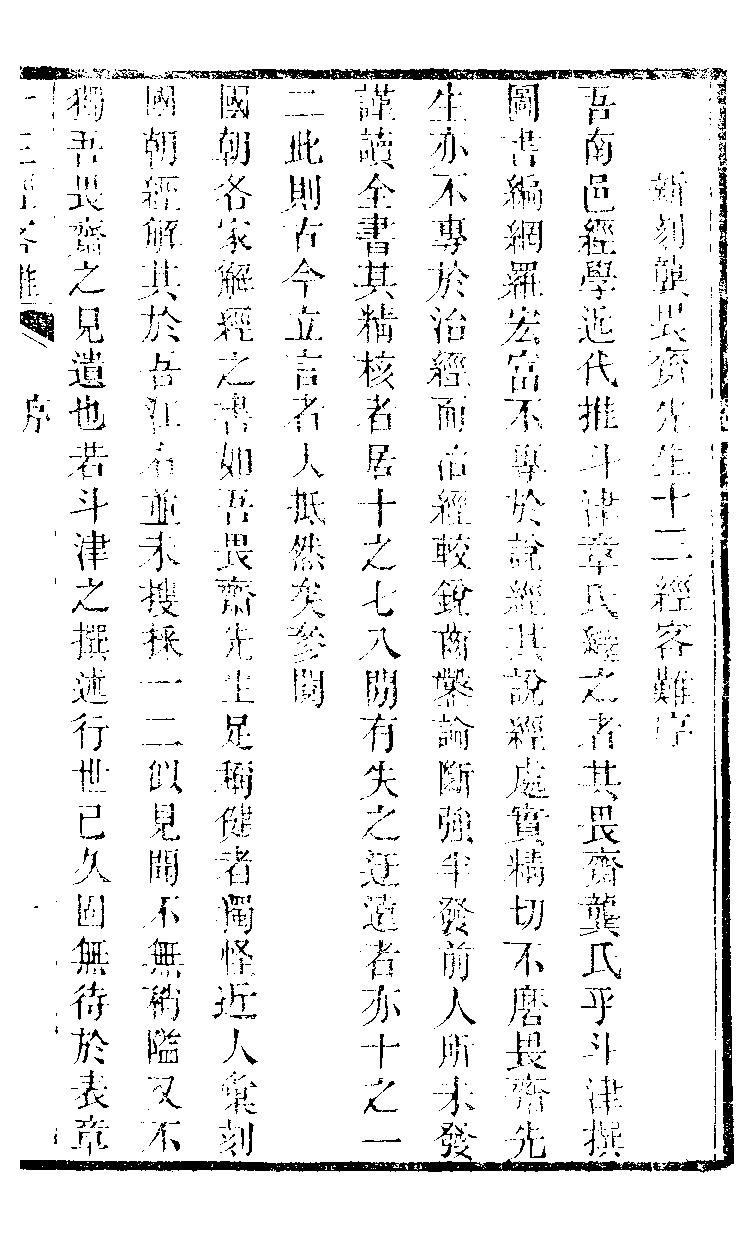 新刻龔畏齋先生十三經客難序
吾南邑經學近代推斗津章氏繼之者其畏齋龔氏乎斗津撰
圖書編網羅宏富不專於說經其說經處實精切不磨畏齋先
生亦不專於治經而治經較銳商鑿論斷強半發前人所未發
謹讀全書其精核者居十之七八間有失之迂遠者亦十之一
二此則古今立言者大抵然矣參閱
國朝各家解經之書如吾畏齋先生足稱健者獨怪近人彙刻
國朝經解其於吾江右並未搜採一二似見聞不無稍隘又不
獨吾畏齋之見遺也若斗津之撰述行世已久固無待於表章
十三經客難
序